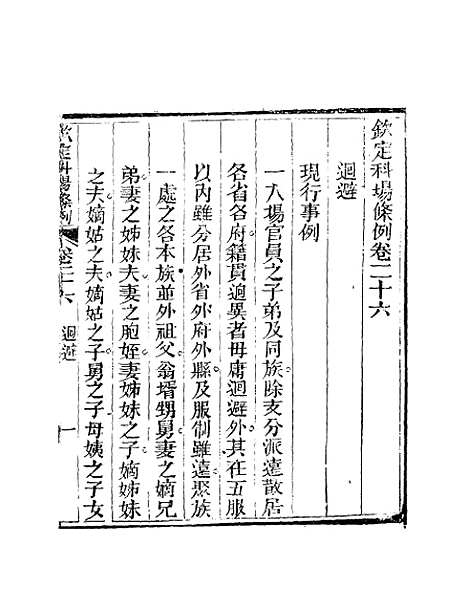 欽定科場條例卷二十六
迴避
現行事例
一入場官員之子弟及同族除支分派遠散居
各省各府籍貫迥異者毋庸迴避外其在五服
以內雖分居外省外府外縣及服制雖遠聚族
一處之各本族並外祖父翁壻甥舅妻之嫡兄
弟妻之姊妹夫妻之胞姪妻姊妹之子嫡姊妹
之夫嫡姑之夫嫡姑之子舅之子母姨之子女
欽定科場條例 卷二十六 迴避 一